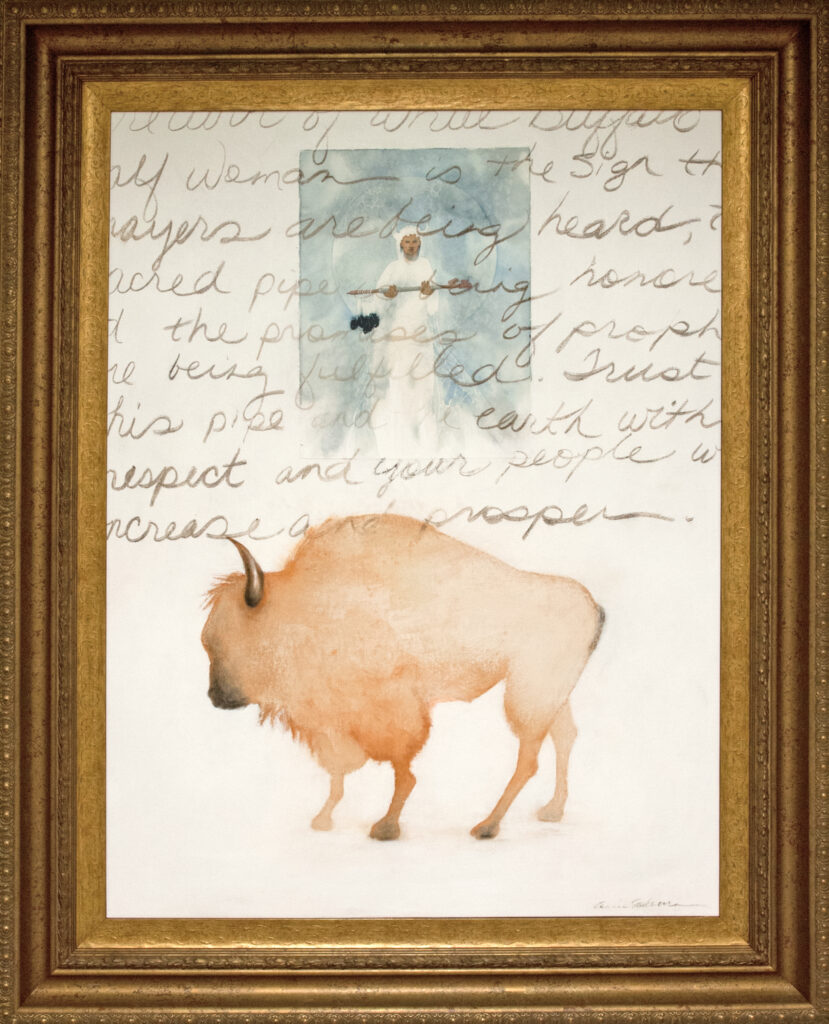 of White Buffalo
alf Woman is the Sign th
rayers are being heard, t
acred pipe being honore
d the promises of proph
re being fulfilled. Trust
his pipe and the earth with
respect and your people w
ncrease and prosper.